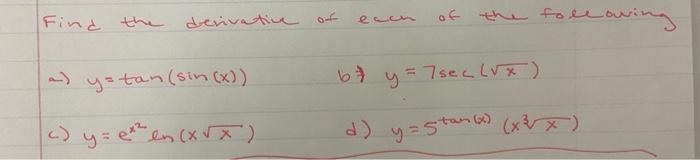 Find the derivative of each of the following
a) y=tan(sin(x)) b) y = 7sec(√x)
c) y = e^x² ln(x√x) d) y = 5^tan(x) (x³√x)